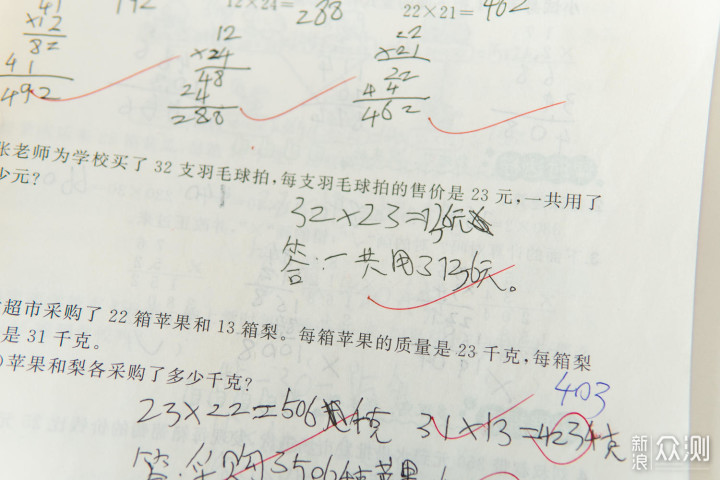 12×24=288
22×21=462
41
×12
82
41
492
12
×24
48
24
288
22
×21
22
44
462
张老师为学校买了 32 支羽毛球拍,每支羽毛球拍的售价是 23 元,一共用了
少元?
32×23=736元
答:一共用了736元。
超市采购了 22 箱苹果和 13 箱梨。每箱苹果的质量是 23 千克,每箱梨
是 31 千克。
)苹果和梨各采购了多少千克?
403
23×22=506千克 31×13=423千克
答:采购了506千克苹果
新浪众测